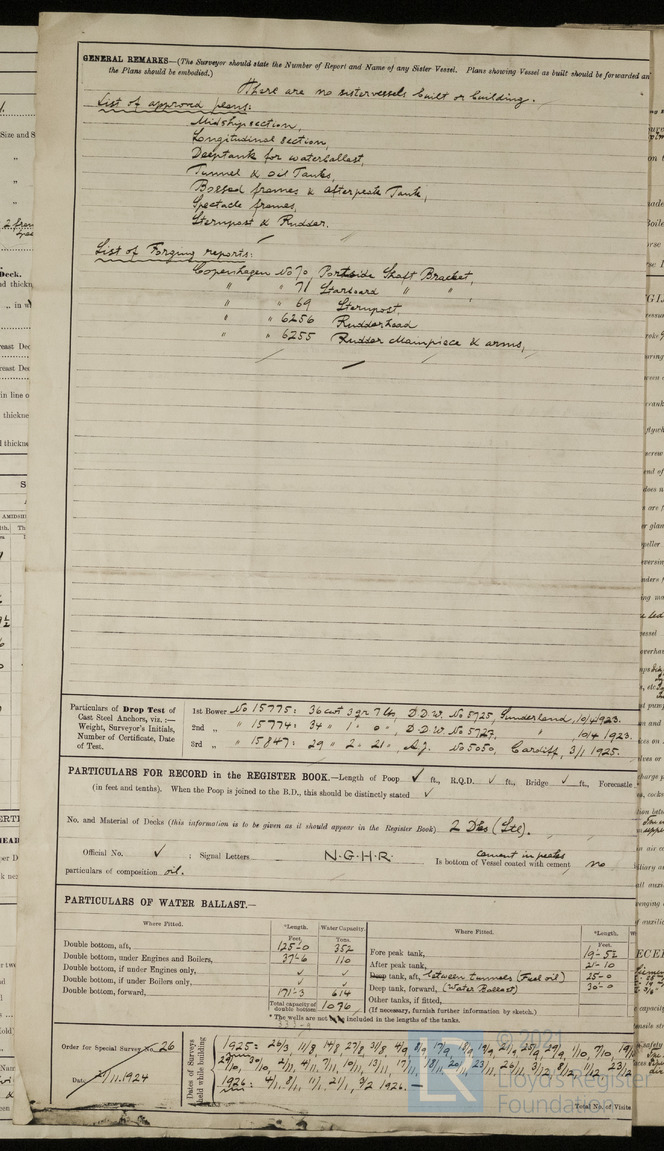 GENERAL REMARKS—(The Surveyor should state the Number of Report and Name of any Sister Vessel. Plans showing Vessel as built should be forwarded an
the Plans should be embodied.)
There are no sistervessels built or building.
List of approved plans:
Midshipsection,
Longitudinal section,
Deeptank for waterballast,
Tunnel & Oil Tanks,
Bossed frames & afterpeak Tank,
Spectacle frames,
Sternpost & Rudder.
List of Forging reports:
Copenhagen No 70, Portside Shaft Bracket,
" " 71 Starboard " "
" " 69 Sternpost,
" " 6256 Rudderhead
" " 6255 Rudder Mainpiece & arms,
Particulars of Drop Test of
Cast Steel Anchors, viz.:—
Weight, Surveyor's Initials,
Number of Certificate, Date
of Test.
1st Bower No 15775: 36 cwt 3 qr 7 lbs, D.D.W. No 5725, Sunderland, 10/4 1923.
2nd „ " 15774: 34 " 1 " 0 " D.D.W. No 5727, " 10/4 1923.
3rd „ " 15847: 29 " 2 " 21 " A.J. No 5050, Cardiff, 3/1 1925.
PARTICULARS FOR RECORD in the REGISTER BOOK.—Length of Poop ✓ ft., R.Q.D. ✓ ft., Bridge ✓ ft., Forecastle
(in feet and tenths). When the Poop is joined to the B.D., this should be distinctly stated ✓
No. and Material of Decks (this information is to be given as it should appear in the Register Book) 2 Dks (Stl).
Official No. ✓ ; Signal Letters N.G.H.R. Is bottom of Vessel coated with cement no
cement in peaks
particulars of composition oil.
PARTICULARS OF WATER BALLAST.—
Where Fitted. *Length. Water Capacity.
Feet. Tons.
Double bottom, aft, 125-0 352
Double bottom, under Engines and Boilers, 37-6 110
Double bottom, if under Engines only, ✓ ✓
Double bottom, if under Boilers only, ✓ ✓
Double bottom, forward, 171-3 614
Total capacity of double bottom 1076
Where Fitted. *Length.
Feet.
Fore peak tank,
After peak tank, 21-10
Deep tank, aft, between tunnels (Fuel oil) 25-0
Deep tank, forward, (Water Ballast) 30-0
Other tanks, if fitted,
(If necessary, furnish further information by sketch.)
* The wells are not included in the lengths of the tanks.
Order for Special Survey No. 26
Date 21/11 1924
Dates of Surveys
held while building
1925: 26/3 11/8 14/8 27/8 31/8 4/9 8/9 17/9 18/9 19/9 21/9 25/9 29/9 1/10, 7/10,
1926: 4/1, 8/1, 11/1, 21/1, 3/2 1926. —
Total No. of Visits
© 2021
Lloyd's Register
Foundation